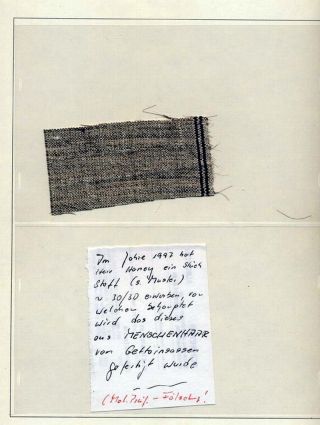 Im Jahre 1997 hat
Herr Honey ein Stück
Stoff (s. Muster)
~ 30/30 erworben, von
welchen behauptet
wird das dieses
aus MENSCHENHAAR
von Gettoinsassen
gefertigt wurde
(Mat. Prüf. - Fälschung!